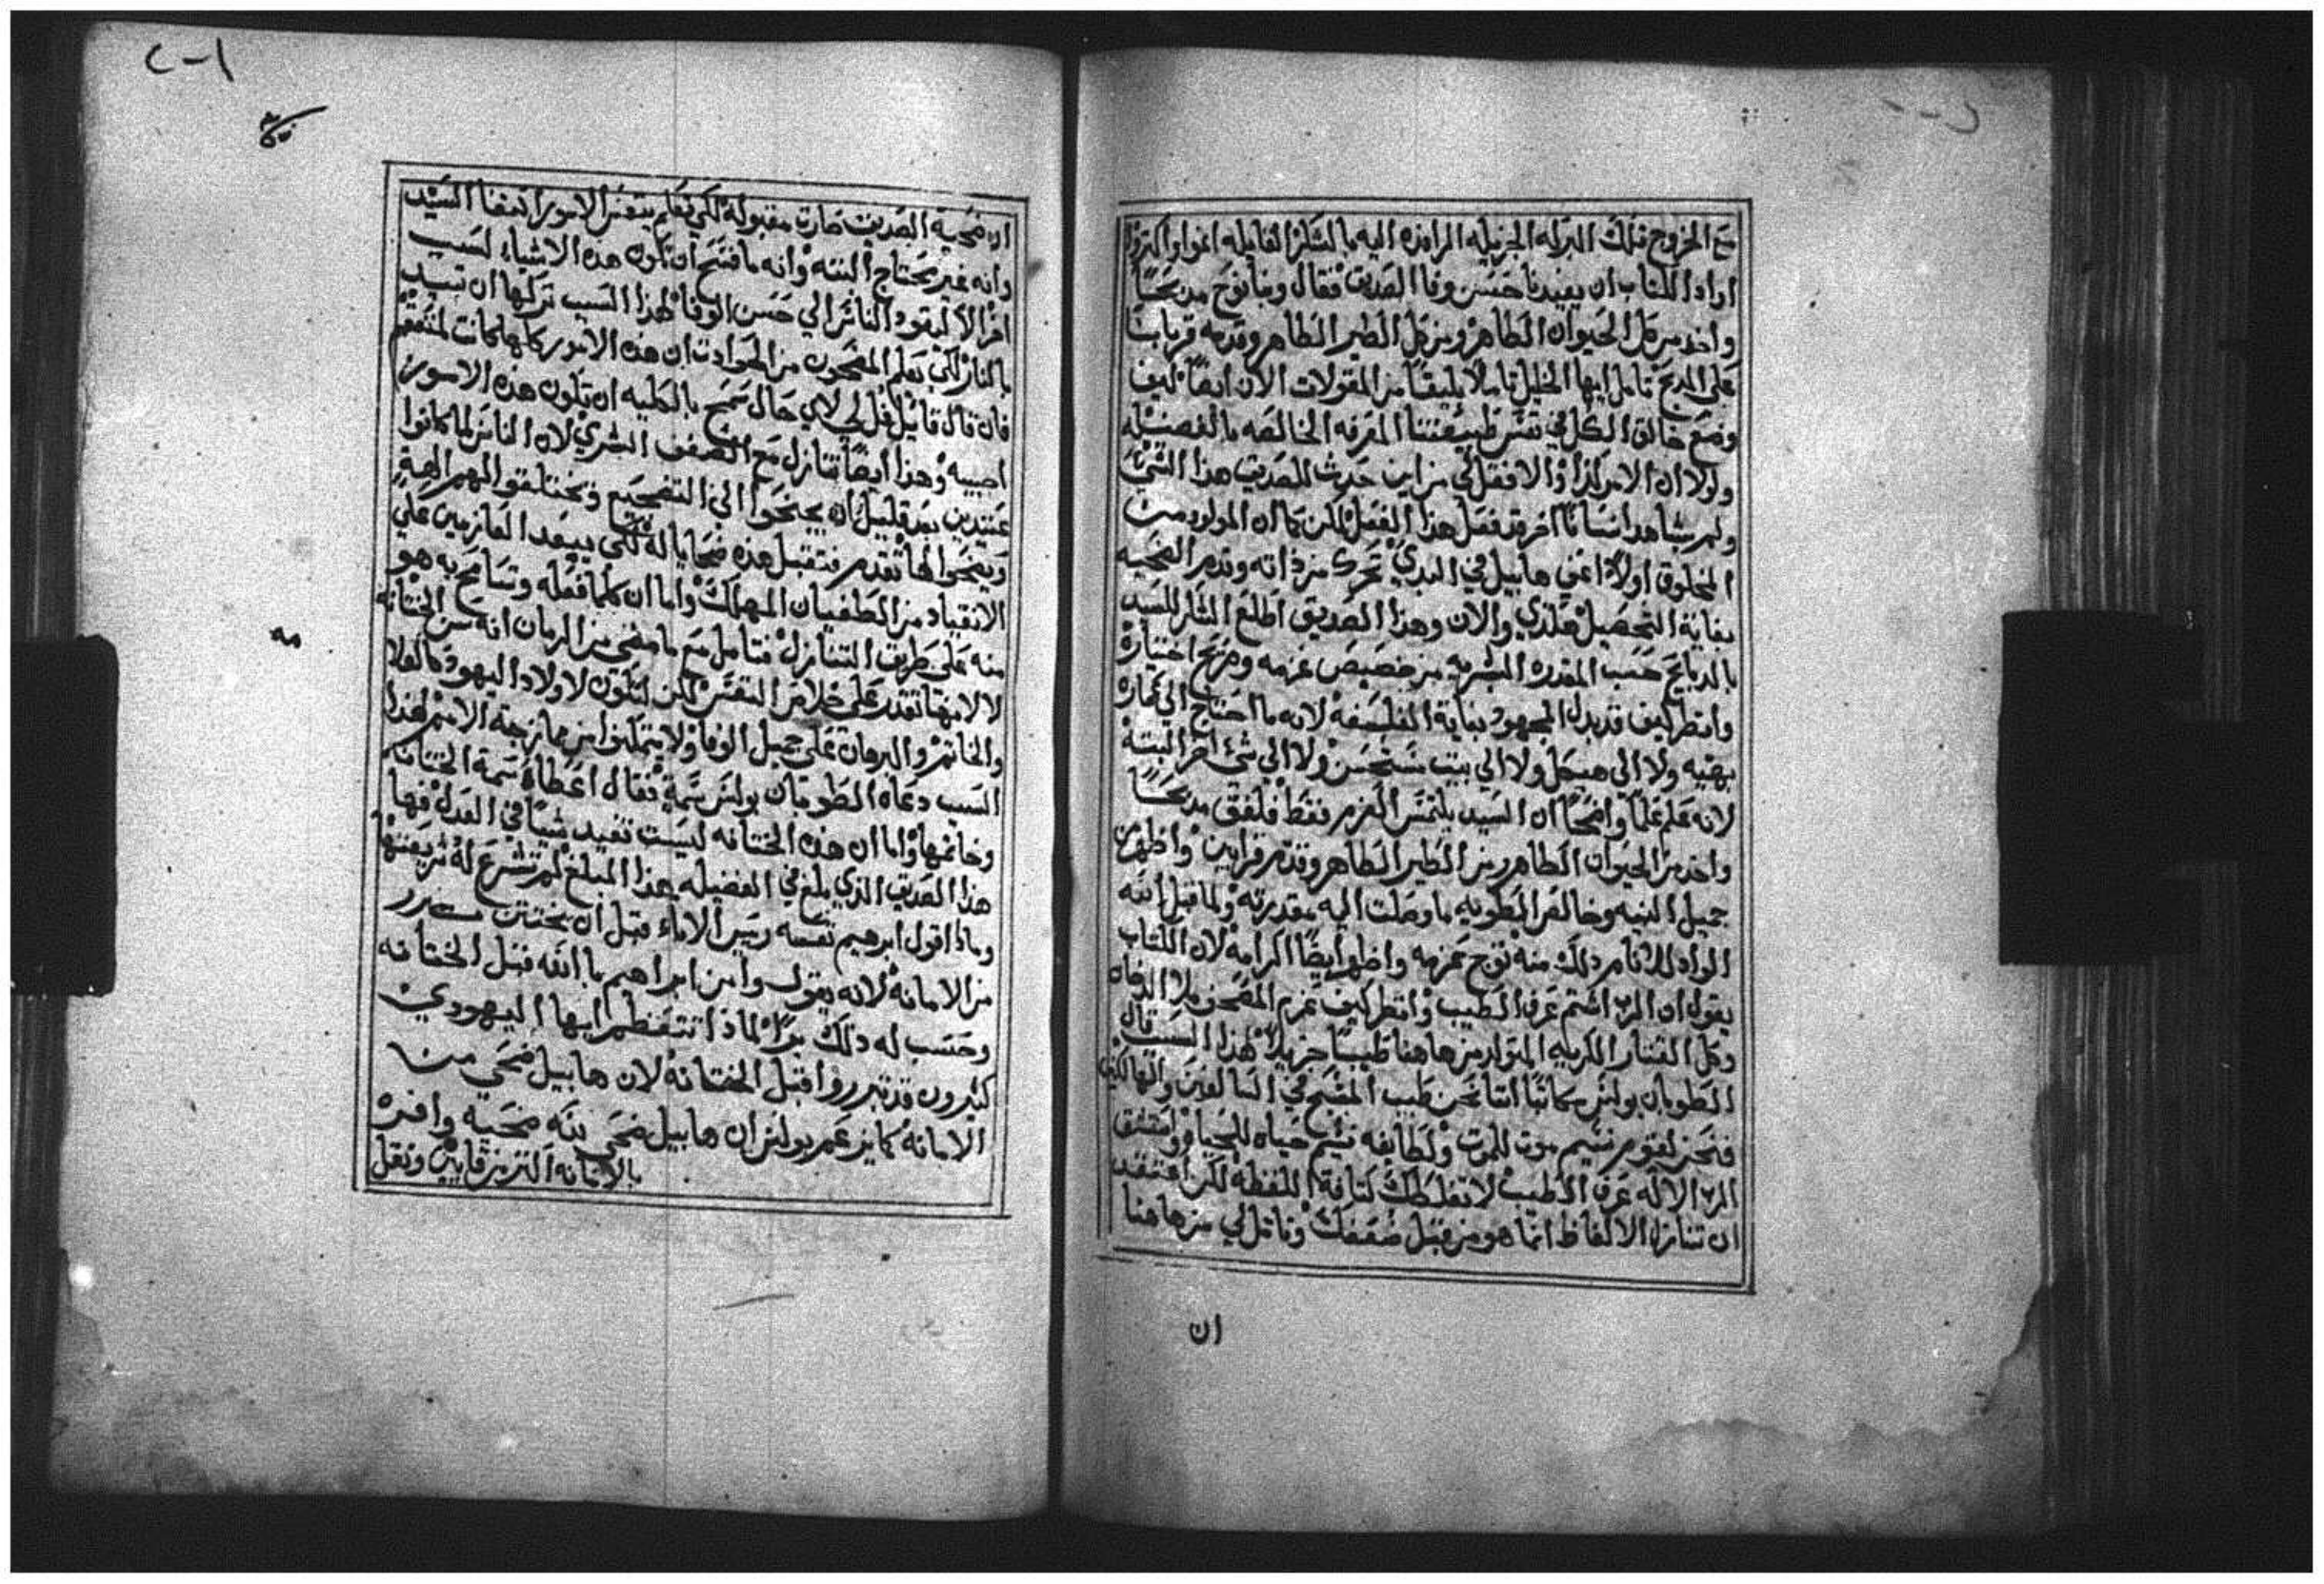 مع الخروج فتلك البركه الجزيله الرامزه اليه بالشكر القايله انموا واكتروا
اراد الكتاب ان يفيدنا حسن وفا الصديق فقال وبنا نوح مدبحًا
واخد من كل الحيوان الطاهر ومن كل الطير الطاهر وقدمه قربانًا
على المدبح تامل ايها الخليل تاملاً بليغًا من المقولات الان ايضًا كيف
وضع خالق الكل في نفس طبيعتنا المعرفه الخالصه بالفضيله
ولولا ان الامر كذا والا فقل لي من اين حدث للصديق هذا الشي
ولم يشاهد انسانًا اخر قد فعل هذا الفعل لكن كما ان المولود من
المخلوق اولاً اعني هابيل في البدي تحرك من ذاته وقدم الضحيه
بغاية التحصيل هكذي والان وهذا الصديق اطلع الشكر للسيد
بالدبايح حسب المقدره البشريه من خصيص عزمه ومزيج اختياره
وانظر كيف قد بدل المجهود بغاية الفلسفه لانه ما احتاج الي عماره
بهيه ولا الى هيكل ولا الي بيت مستحسن ولا الي شي اخر البتة
لانه علم علمًا واضحًا ان السيد يلتمس العزم فقط فلفق مدبحًا
واخد من الحيوان الطاهر ومن الطير الطاهر وقدم قرابين واظهر من
جميل النيه وخالص الطويه ما وصلت اليه مقدرته ولما قبل الله
الواد للانام دلك منه توج عزمه واظهر ايضًا اكرامه لان الكتاب
يقول ان الرب اشتم عرف الطيب وانظر كيف عزم المضحي ملا الدخان
وكل القتار الكريه المتولد من هاهنا طيبًا جزيلاً لهذا السبب قال
الطوبان بولس كاتبًا اننا نحن طيب المسيح في السالفين والهالكين
فنحن لقوم نسيم موت للموت ولطايفه نسيم حياه للحياه واستنشق
الرب الاله عرف الطيب لا تغلطك كثافة اللفظه لكن اعتقد
ان تنازل الالفاظ انما هو من قبل ضعفك وتامل لي من هاهنا
ان
ان ضحية الصديق صارت مقبوله لكي نعلم بنفس الامور ايضًا السيد
وانه غير محتاج البته وانه ما فسح ان تكون هده الاشياء لسبب
اخر الا ليقود الناس الي حسن الوفا لهذا السبب تركها ان تبيد
بالنار لكي يعلم المضحون من الحوادت ان هده الامور كلها كانت لمنفعتهم
فان قال قايل قل لي لاي حال سمح بالكليه ان تكون هذه الامور
اجيبه وهذا ايضًا تنازل مع الضعف البشري لان الناس لما كانوا
عتيدين بعد قليل ان يجنحوا الى التضجيع ويختلقوا لهم الهة
ويضحوا لها تقدم فتقبل هده ضحايا له لكي يبعد العازمين علي
الانقياد من الطغيان المهلك واما ان كلما فعله وتسامح به هو
منه على طريق التنازل فتامل مع ما مضي من الزمان انه سن الختانه
لا لانها تقتدر على خلاص النفس لكن لتكون لاولاد اليهود كالعلامه
والخاتم والبرهان علي جميل الوفا ولا يتمكنوا من ممازجة الامم لهذا
السبب دعاه الطوبان بولس سمة فقال اعطاه سمة الختانه
وخاتمها واما ان هده الختانه ليست تفيد شيًا في العدل فها
هذا الصديق الذي بلغ في الفضيله هذا المبلغ لم تشرع له شريعتها
وماذا اقول ابرهيم نفسه رييس الاباء قبل ان يختتن تبرر
من الامانه لانه يقول وامن ابراهيم بالله قبل الختانه
وحسب له دلك برًا لماذا تتعظم ايها اليهودي
كثيرون قد تبرروا قبل الختانه لان هابيل ضحي من
الامانه كما يزعم بولس ان هابيل ضحي لله ضحية وافره
بالامانه اكثر من قايين ونقل